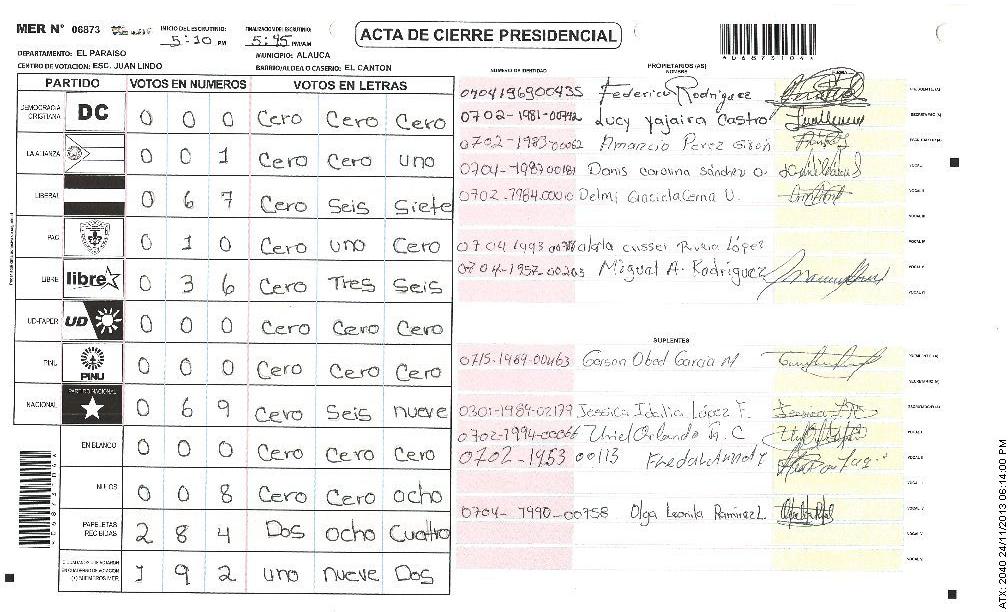 MER N° 06873 INICIO DEL ESCRUTINIO: 5:10 PM FINALIZACION DEL ESCRUTINIO: 5:45 PM/AM
ACTA DE CIERRE PRESIDENCIAL
DEPARTAMENTO: EL PARAISO MUNICIPIO: ALAUCA
CENTRO DE VOTACION: ESC. JUAN LINDO BARRIO/ALDEA O CASERIO: EL CANTON
PARTIDO VOTOS EN NUMEROS VOTOS EN LETRAS
DEMOCRACIA CRISTIANA DC 0 0 0 Cero Cero Cero
LA ALIANZA 0 0 1 Cero Cero uno
LIBERAL 0 6 7 Cero Seis Siete
PAC 0 1 0 Cero uno Cero
LIBRE libre 0 3 6 Cero Tres Seis
UD-FAPER UD 0 0 0 Cero Cero Cero
PINU PINU 0 0 0 Cero Cero Cero
NACIONAL PARTIDO NACIONAL 0 6 9 Cero Seis nueve
EN BLANCO 0 0 0 Cero Cero Cero
NULOS 0 0 8 Cero Cero ocho
PAPELETAS RECIBIDAS 2 8 4 Dos ocho Cuatro
1 9 2 uno nueve Dos
NUMERO DE IDENTIDAD PROPIETARIOS (AS) NOMBRE
0704196900435 Federico Rodriguez
0702-1981-00742 Lucy Yajaira Castro
0702-1983-00062 Amancio Perez
0704-198700181 Danis Carolina Sánchez O.
0702-1984.00010 Delmi Graciela Cerna U.
0704 1993 Rivera López
0704-1957-00203 Migual A. Rodriguez
SUPLENTES
0715-1989-00463 Gerson Obed Garcia M
0301-1989-02177 Jessica Idalia López F.
0702-1994-00066 Uriel Orlando C
0702-1953 00113
0704-1990-00758 Olga Leonila Ramirez L.
ATX: 2040 24/11/2013 06:14:00 PM